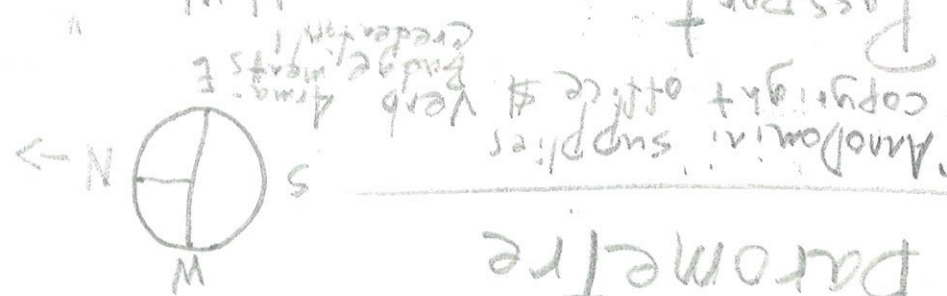 Barometre
W
N S
AnnoDomini supplies
copyright office $ Verb Arma-
Badge ments E
Credential
Passport